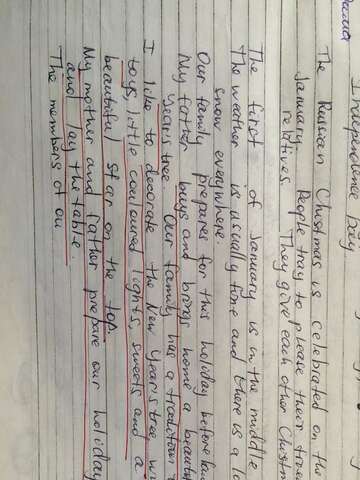 Independence Day.
The Russian Christmas is celebrated on the
January. People tray to please their
relatives. They give each other
The first of January is in the middle
The weather is usually fine and there is a
snow everywhere.
Our family prepares for this holiday
My father buys and brings home a
Year's tree. Our family has a tradition
I like to decorate the New Year's tree
toys, little couloured lights, sweets and a
beautiful star on the top.
My mother and father prepare our holiday
and lay the table.
The members of ou